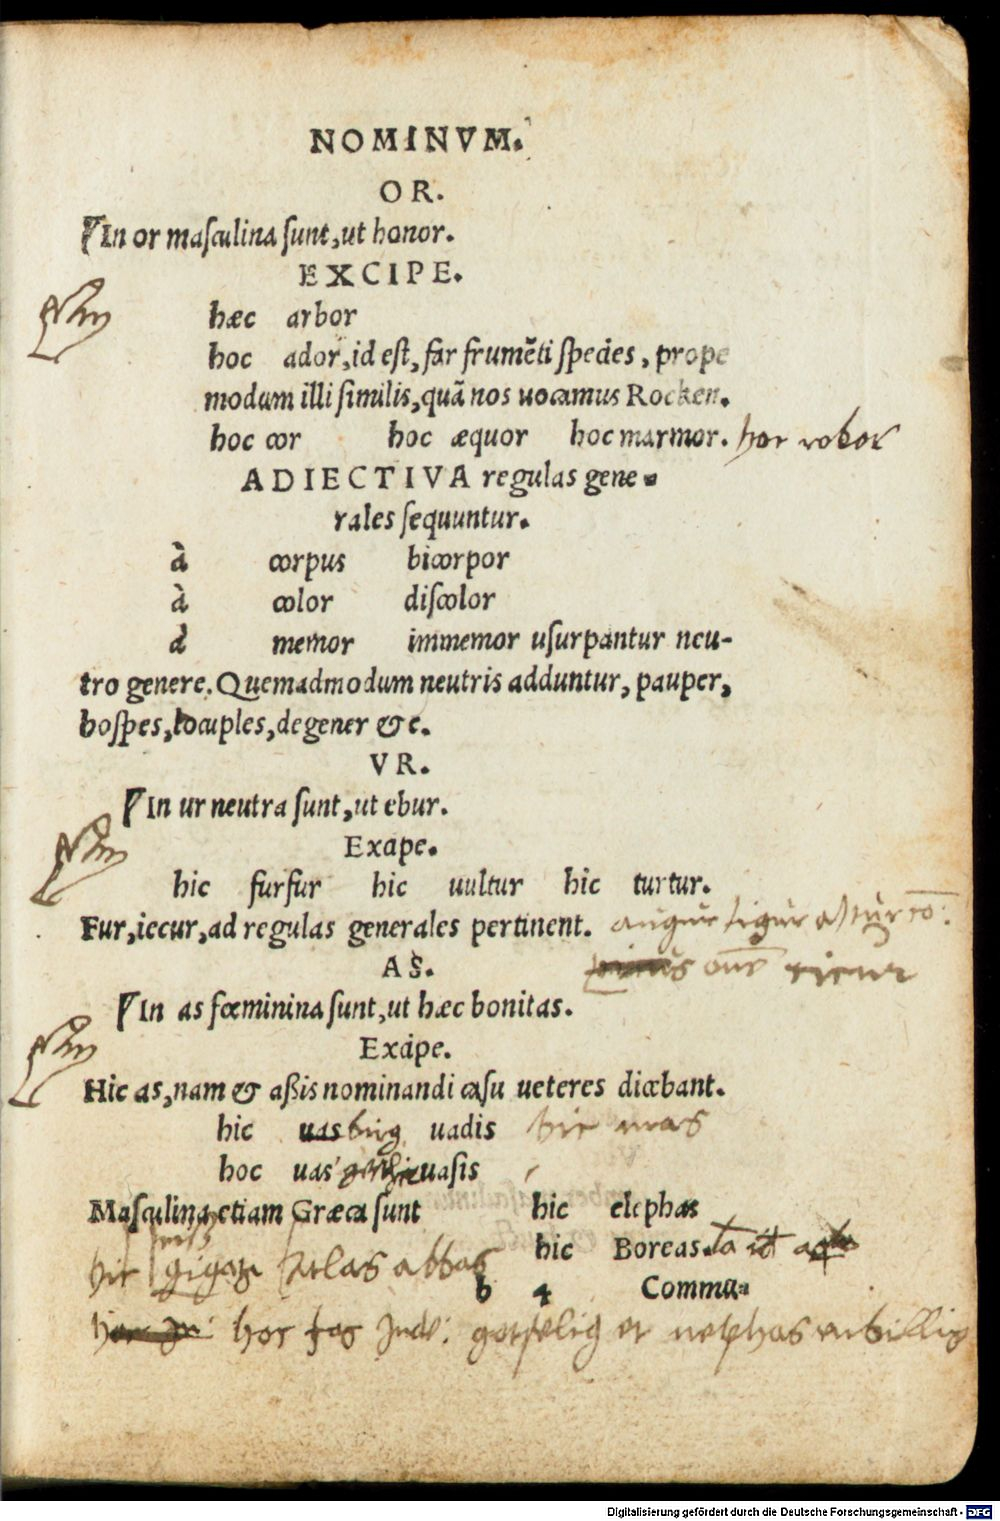 NOMINVM.
OR.
In or masculina sunt, ut honor.
EXCIPE.
hæc arbor
hoc ador, id est, far frumẽti species, prope
modum illi similis, quã nos uocamus Rocken.
hoc cor hoc æquor hoc marmor. hoc robor
ADIECTIVA regulas gene-
rales sequuntur.
à corpus bicorpor
à color discolor
à memor immemor usurpantur neu-
tro genere. Quemadmodum neutris adduntur, pauper,
hospes, locuples, degener &c.
VR.
In ur neutra sunt, ut ebur.
Excipe.
hic furfur hic uultur hic turtur.
Fur, iecur, ad regulas generales pertinent. augur ligur astur
AS.
In as fœminina sunt, ut hæc bonitas.
Excipe.
Hic as, nam & aßis nominandi casu ueteres dicebant.
hic uas burg uadis hic mas
hoc uas uasis
Masculina etiam Græca sunt hic elephas
hic Boreas.
hic gigas Atlas abbas
b 4 Comma-
hoc fas Inde: et nephas